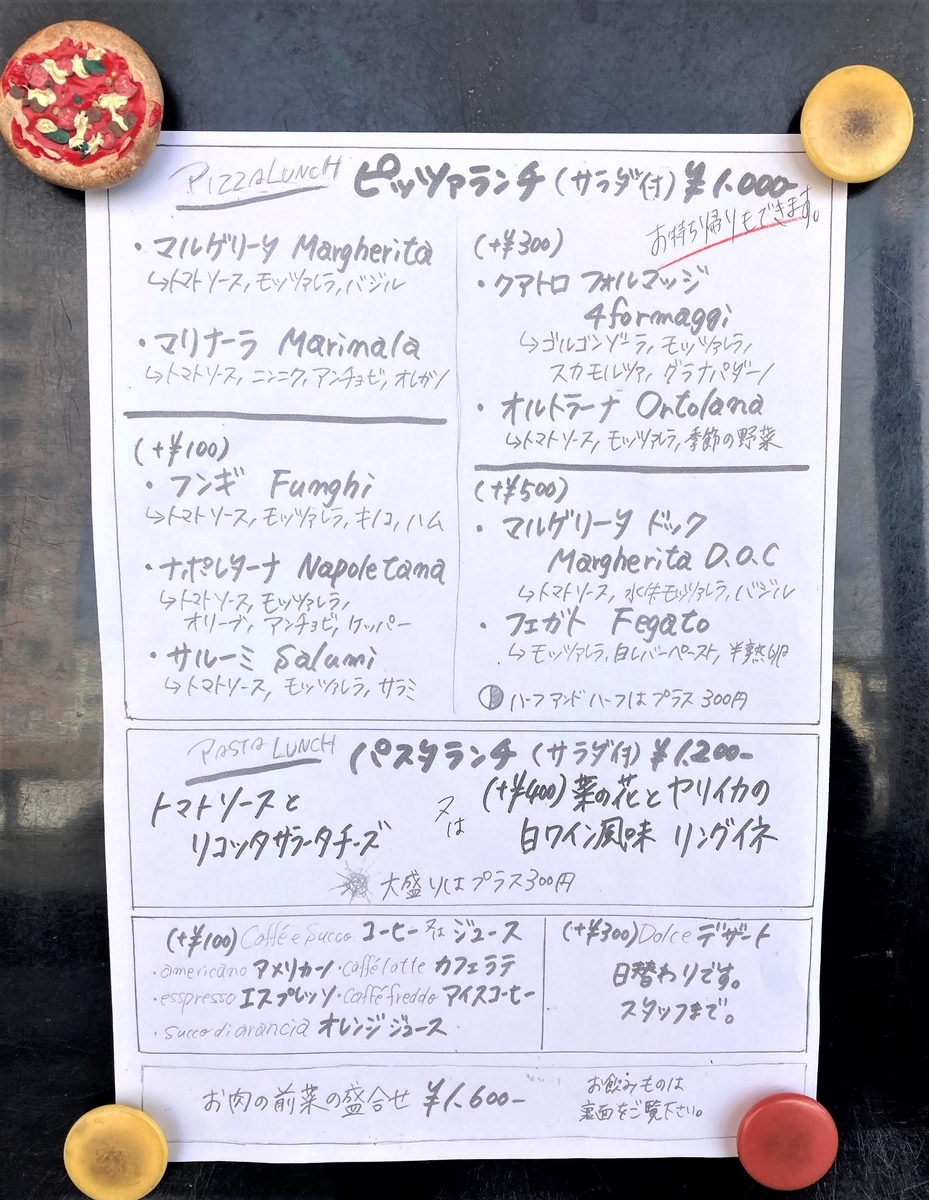 PIZZA LUNCH ピッツァランチ (サラダ付) ¥1.000-
お持ち帰りもできます。
・マルゲリータ Margherita
↳トマトソース, モッツァレラ, バジル
・マリナーラ Marinala
↳トマトソース, ニンニク, アンチョビ, オレガノ
(+¥100)
・フンギ Funghi
↳トマトソース, モッツァレラ, キノコ, ハム
・ナポレターナ Napoletana
↳トマトソース, モッツァレラ,
オリーブ, アンチョビ, ケッパー
・サルーミ Salumi
↳トマトソース, モッツァレラ, サラミ
(+¥300)
・クアトロ フォルマッジ
4formaggi
↳ゴルゴンゾーラ, モッツァレラ,
スカモルツァ, グラナパダーノ
・オルトラーナ Ortolana
↳トマトソース, モッツァレラ, 季節の野菜
(+¥500)
・マルゲリータ ドック
Margherita D.O.C
↳トマトソース, 水牛モッツァレラ, バジル
・フェガト Fegato
↳モッツァレラ, 白レバーペースト, 半熟卵
ハーフアンドハーフはプラス300円
PASTA LUNCH パスタランチ (サラダ付) ¥1.200-
トマトソースと
リコッタサラータチーズ
又は
(+¥400) 菜の花とヤリイカの
白ワイン風味 リングイネ
大盛りはプラス300円
(+¥100) Caffé e Succo. コーヒー又はジュース
・americano アメリカーノ ・caffélatte カフェラテ
・esspresso エスプレッソ ・Caffé freddo アイスコーヒー
・succo di arancia オレンジジュース
(+¥300) Dolce デザート
日替わりです。
スタッフまで。
お肉の前菜の盛合せ ¥1.600-
お飲みものは
裏面をご覧下さい。